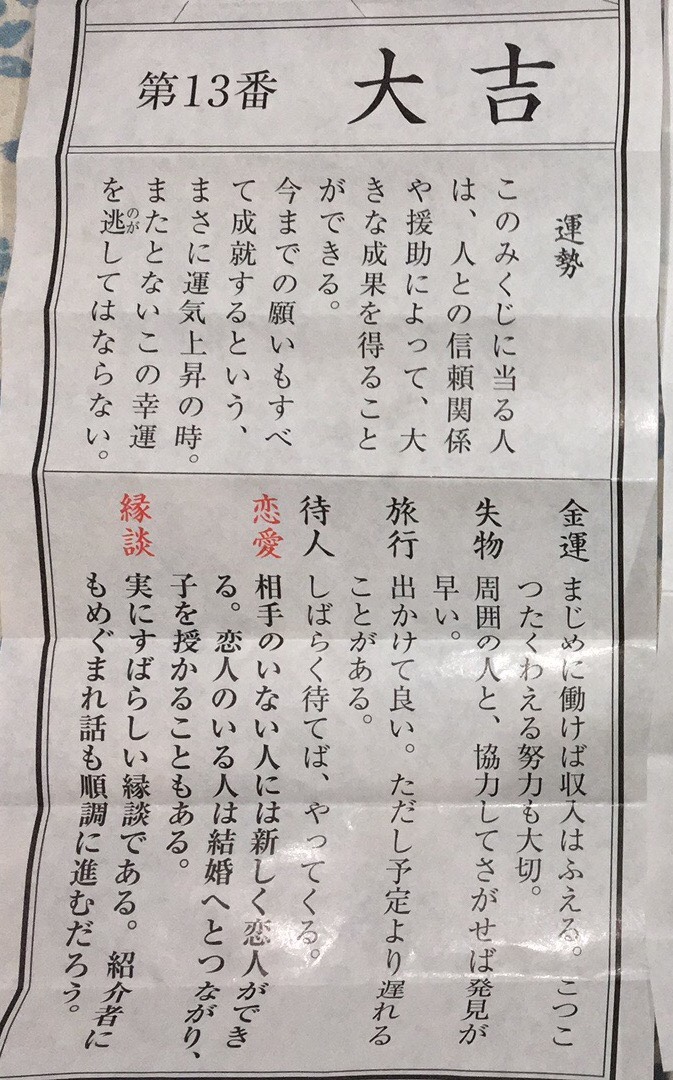 第13番 大吉
運勢
このみくじに当る人
は、人との信頼関係
や援助によって、大
きな成果を得ること
ができる。
今までの願いもすべ
て成就するという、
まさに運気上昇の時。
またとないこの幸運
を逃してはならない。
のが
金運 まじめに働けば収入はふえる。こつこ
つたくわえる努力も大切。
失物 周囲の人と、協力してさがせば発見が
早い。
旅行 出かけて良い。ただし予定より遅れる
ことがある。
待人 しばらく待てば、やってくる。
恋愛 相手のいない人には新しく恋人ができ
る。恋人のいる人は結婚へとつながり、
子を授かることもある。
縁談 実にすばらしい縁談である。紹介者に
もめぐまれ話も順調に進むだろう。